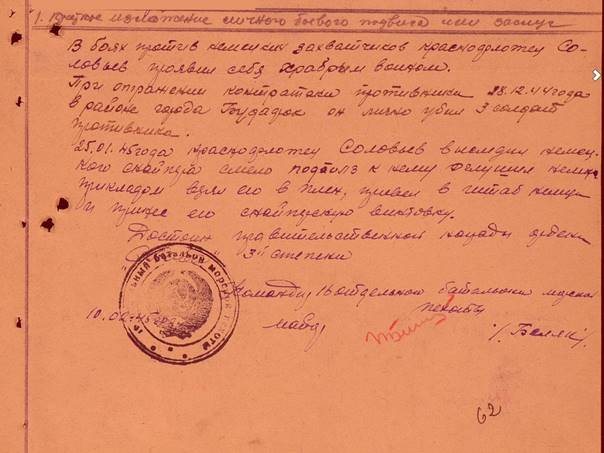 1. Краткое изложение личного боевого подвига или заслуг
В боях против немецких захватчиков краснофлотец Со-
ловьев проявил себя храбрым воином.
При отражении контратаки противника 28.12.44 года
в районе города он лично убил 3 солдат
противника.
25.01.45 года краснофлотец Соловьев выследил немец-
кого снайпера смело подполз к нему оглушил немца
прикладом взял его в плен, привел в штаб
и принес его снайперскую винтовку.
Достоин правительственной награды орден
3й степени
Командир 16 отдельного батальона морской
пехоты
майор /Беляк/
10.02.45
батальон морской пехоты
62